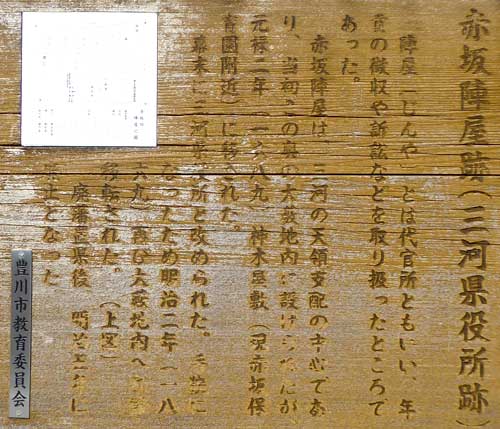 赤坂陣屋跡（三河県役所跡）
陣屋「じんや」とは代官所ともいい、年
貢の徴収や訴訟などを取り扱ったところで
あった。
赤坂陣屋は、三河の天領支配の中心であ
り、当初この奥の大藪地内に設けられたが
元禄二年（一六八九）神木屋敷（現赤坂保
育園附近）に移された。
幕末に三河県役所と改められた。手狭に
なったため明治二年（一八
六九）再び大藪地内へ
移転された。（上図）
廃藩置県後 明治
廃止となった
豊川市教育委員会